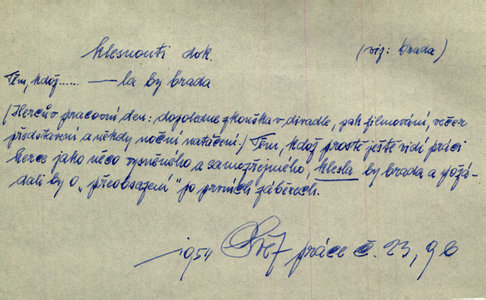 klesnouti dok. (viz: brada)
Těm, kdož..... — la by brada
(Hercův pracovní den: dopoledne zkouška v divadle, pak filmování, večer
představení a někdy noční natáčení.) Těm, kdož prostě ještě vidí práci
herce jako něco vysněného a samozřejmého, klesla by brada a požá-
dali by o „přeobsazení" po prvních záběrech.
1954 Svět práce č. 23, 9b